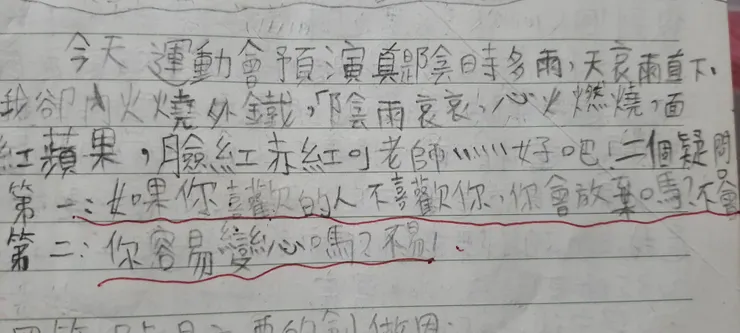 今天運動會預演真是陰時多雨，天哀雨直下，
我卻內火燒外鐵，「陰雨哀哀，心火燃燒，面
紅蘋果，臉紅赤紅叫老師……好吧！二個疑問
第一：如果你喜歡的人不喜歡你，你會放棄嗎？不會
第二：你容易變心嗎？不易！